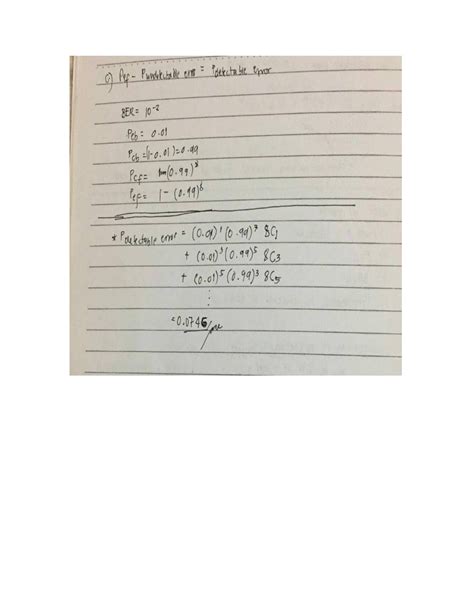 c) Pef - P undetectable error = Pdetectable error
BER = 10^-2
Peb = 0.01
Pcb = (1-0.01) = 0.99
Pcf = (0.99)^8
Pef = 1 - (0.99)^8
* Pdetectable error = (0.01)^1 (0.99)^7 8C1
+ (0.01)^3 (0.99)^5 8C3
+ (0.01)^5 (0.99)^3 8C5
⋮
= 0.0746